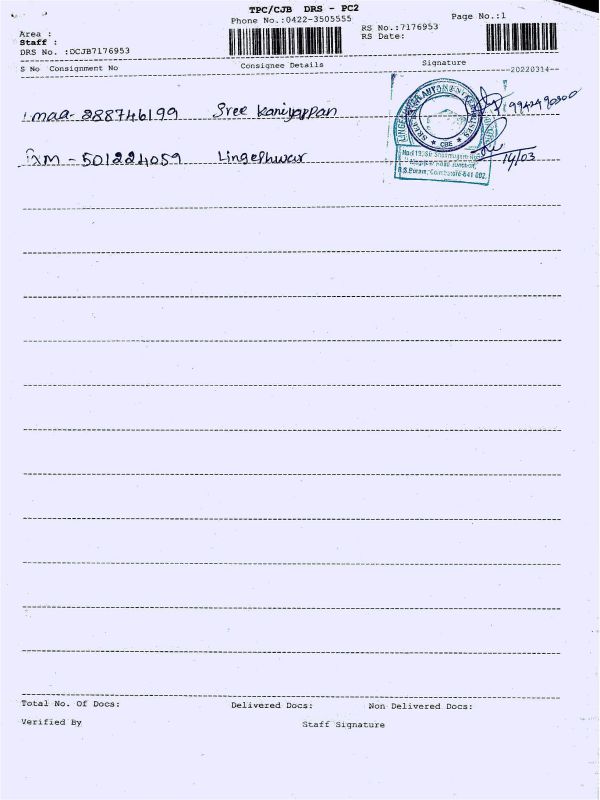 TPC/CJB DRS - PC2
Phone No.:0422-3505555
Page No.:1
Area :
RS No.:7176953
Staff :
RS Date:
DRS No. :DCJB7176953
S No Consignment No Consignee Details Signature
20220314
maa- 288746199 Sree Kaniyappan
CBE
IXM - 501224059 Lingeshwar
14/03
R.S.Puram, Coimbatore-641 002.
Total No. Of Docs: Delivered Docs: Non Delivered Docs:
Verified By Staff Signature